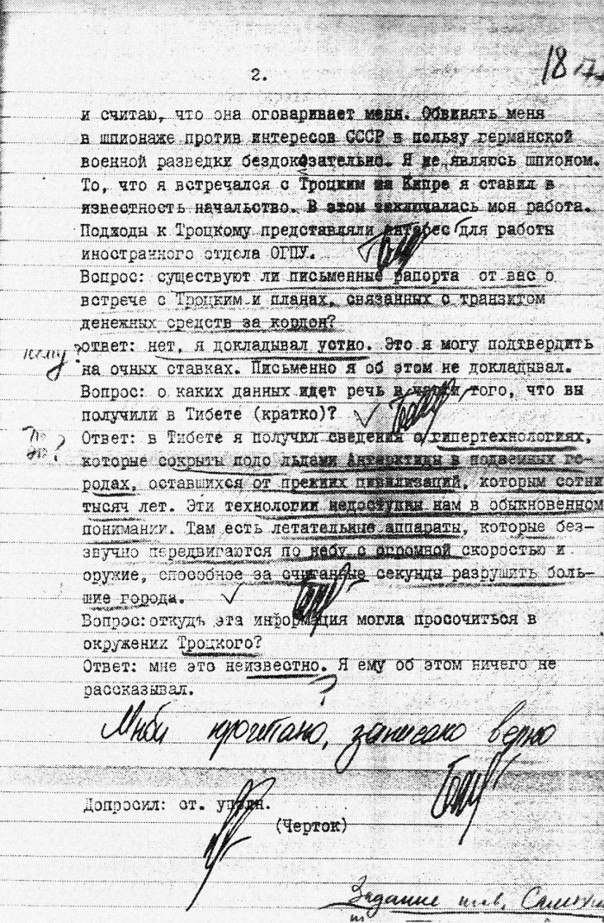 2.
18
и считаю, что она оговаривает меня. Обвинять меня
в шпионаже против интересов СССР в пользу германской
военной разведки бездоказательно. Я не являюсь шпионом.
То, что я встречался с Троцким на Кипре я ставил в
известность начальство. В этом заключалась моя работа.
Подходы к Троцкому представляли интерес для работы
иностранного отдела ОГПУ.
Вопрос: существуют ли письменные рапорта от вас о
встрече с Троцким и планах, связанных с транзитом
денежных средств за кордон?
кому?
ответ: нет, я докладывал устно. Это я могу подтвердить
на очных ставках. Письменно я об этом не докладывал.
Вопрос: о каких данных идет речь в части того, что вы
получили в Тибете (кратко)?
Ответ: в Тибете я получил сведения о гипертехнологиях,
которые сокрыты подо льдами Антарктиды в подземных го-
родах, оставшихся от прежних цивилизаций, которым сотни
тысяч лет. Эти технологии недоступны нам в обыкновенном
понимании. Там есть летательные аппараты, которые без-
звучно передвигаются по небу с огромной скоростью и
оружие, способное за считанные секунды разрушить боль-
шие города.
Вопрос:откудь эта информация могла просочиться в
окружении Троцкого?
Ответ: мне это неизвестно. Я ему об этом ничего не
рассказывал.
?
Мной прочитано, записано верно
Допросил: ст. уполн.
(Черток)
Задание тов.